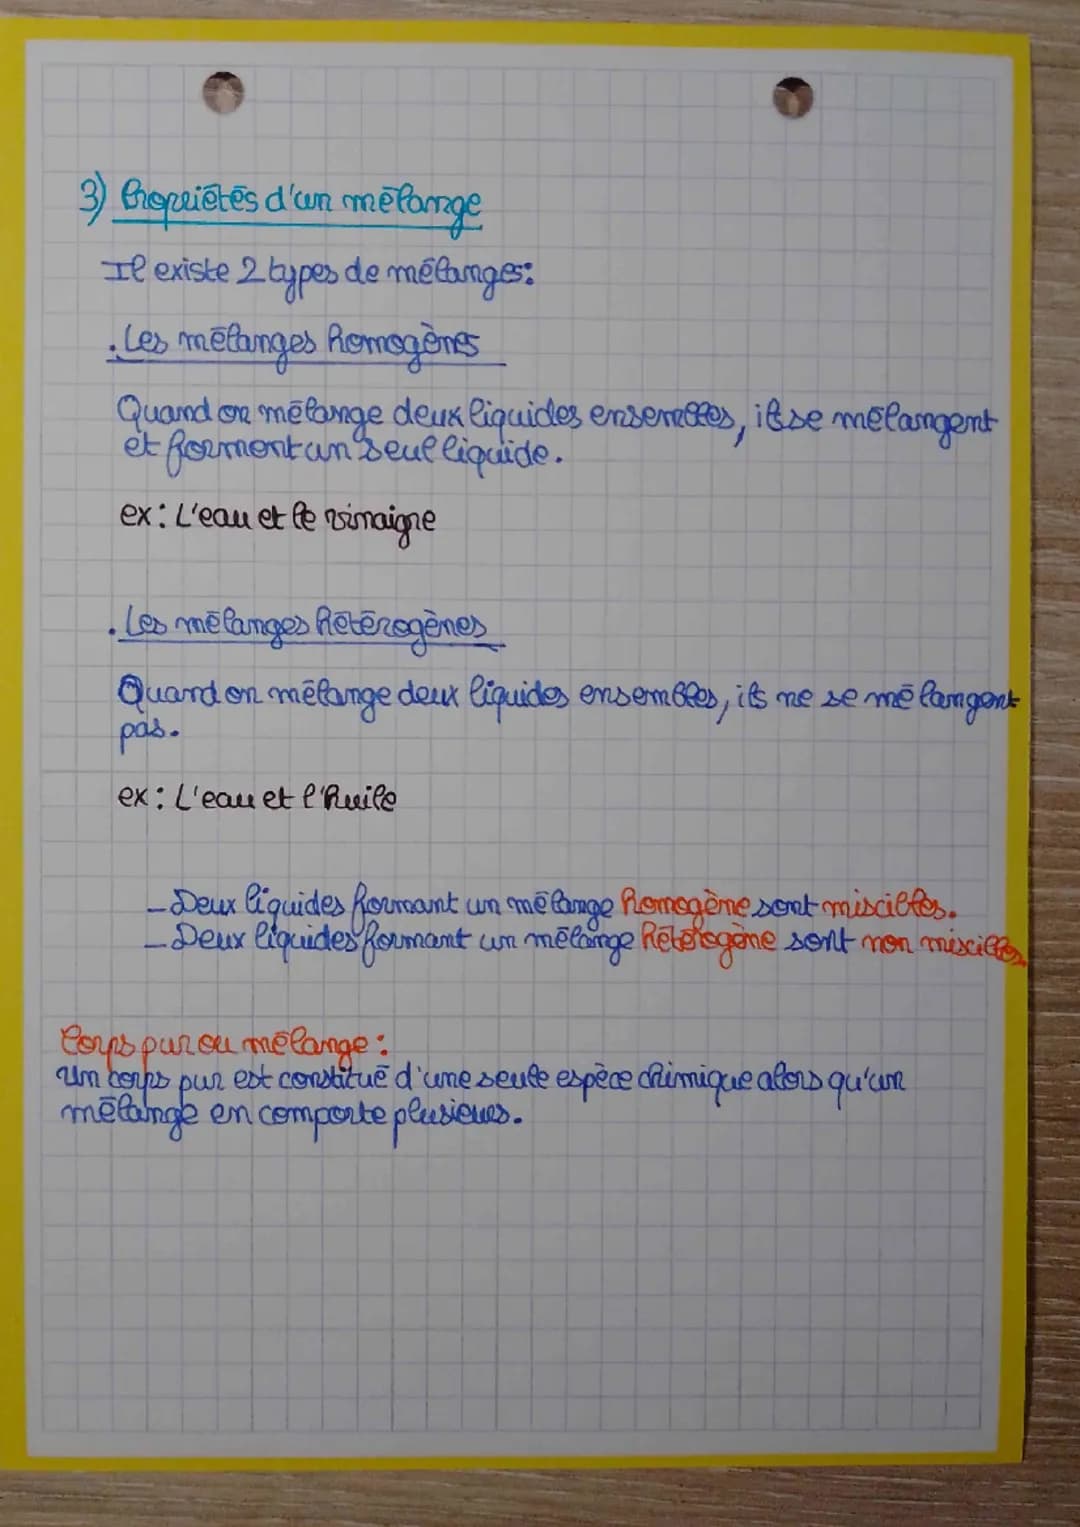 3) Propriétés d'un mélange
Il existe 2 types de mélanges:
. Les mélanges homogènes
Quand on mélange deux liquides ensembles, ils se mélangent
et forment un seul liquide.
ex: L'eau et le vinaigre
. Les mélanges hétérogènes
Quand on mélange deux liquides ensembles, ils ne se mélangent
pas.
ex: L'eau et l'huile
- Deux liquides formant un mélange homogène sont miscibles.
- Deux liquides formant un mélange hétérogène sont non miscibles.
Corps pur ou mélange:
Un corps pur est constitué d'une seule espèce chimique alors qu'un
mélange en comporte plusieurs.